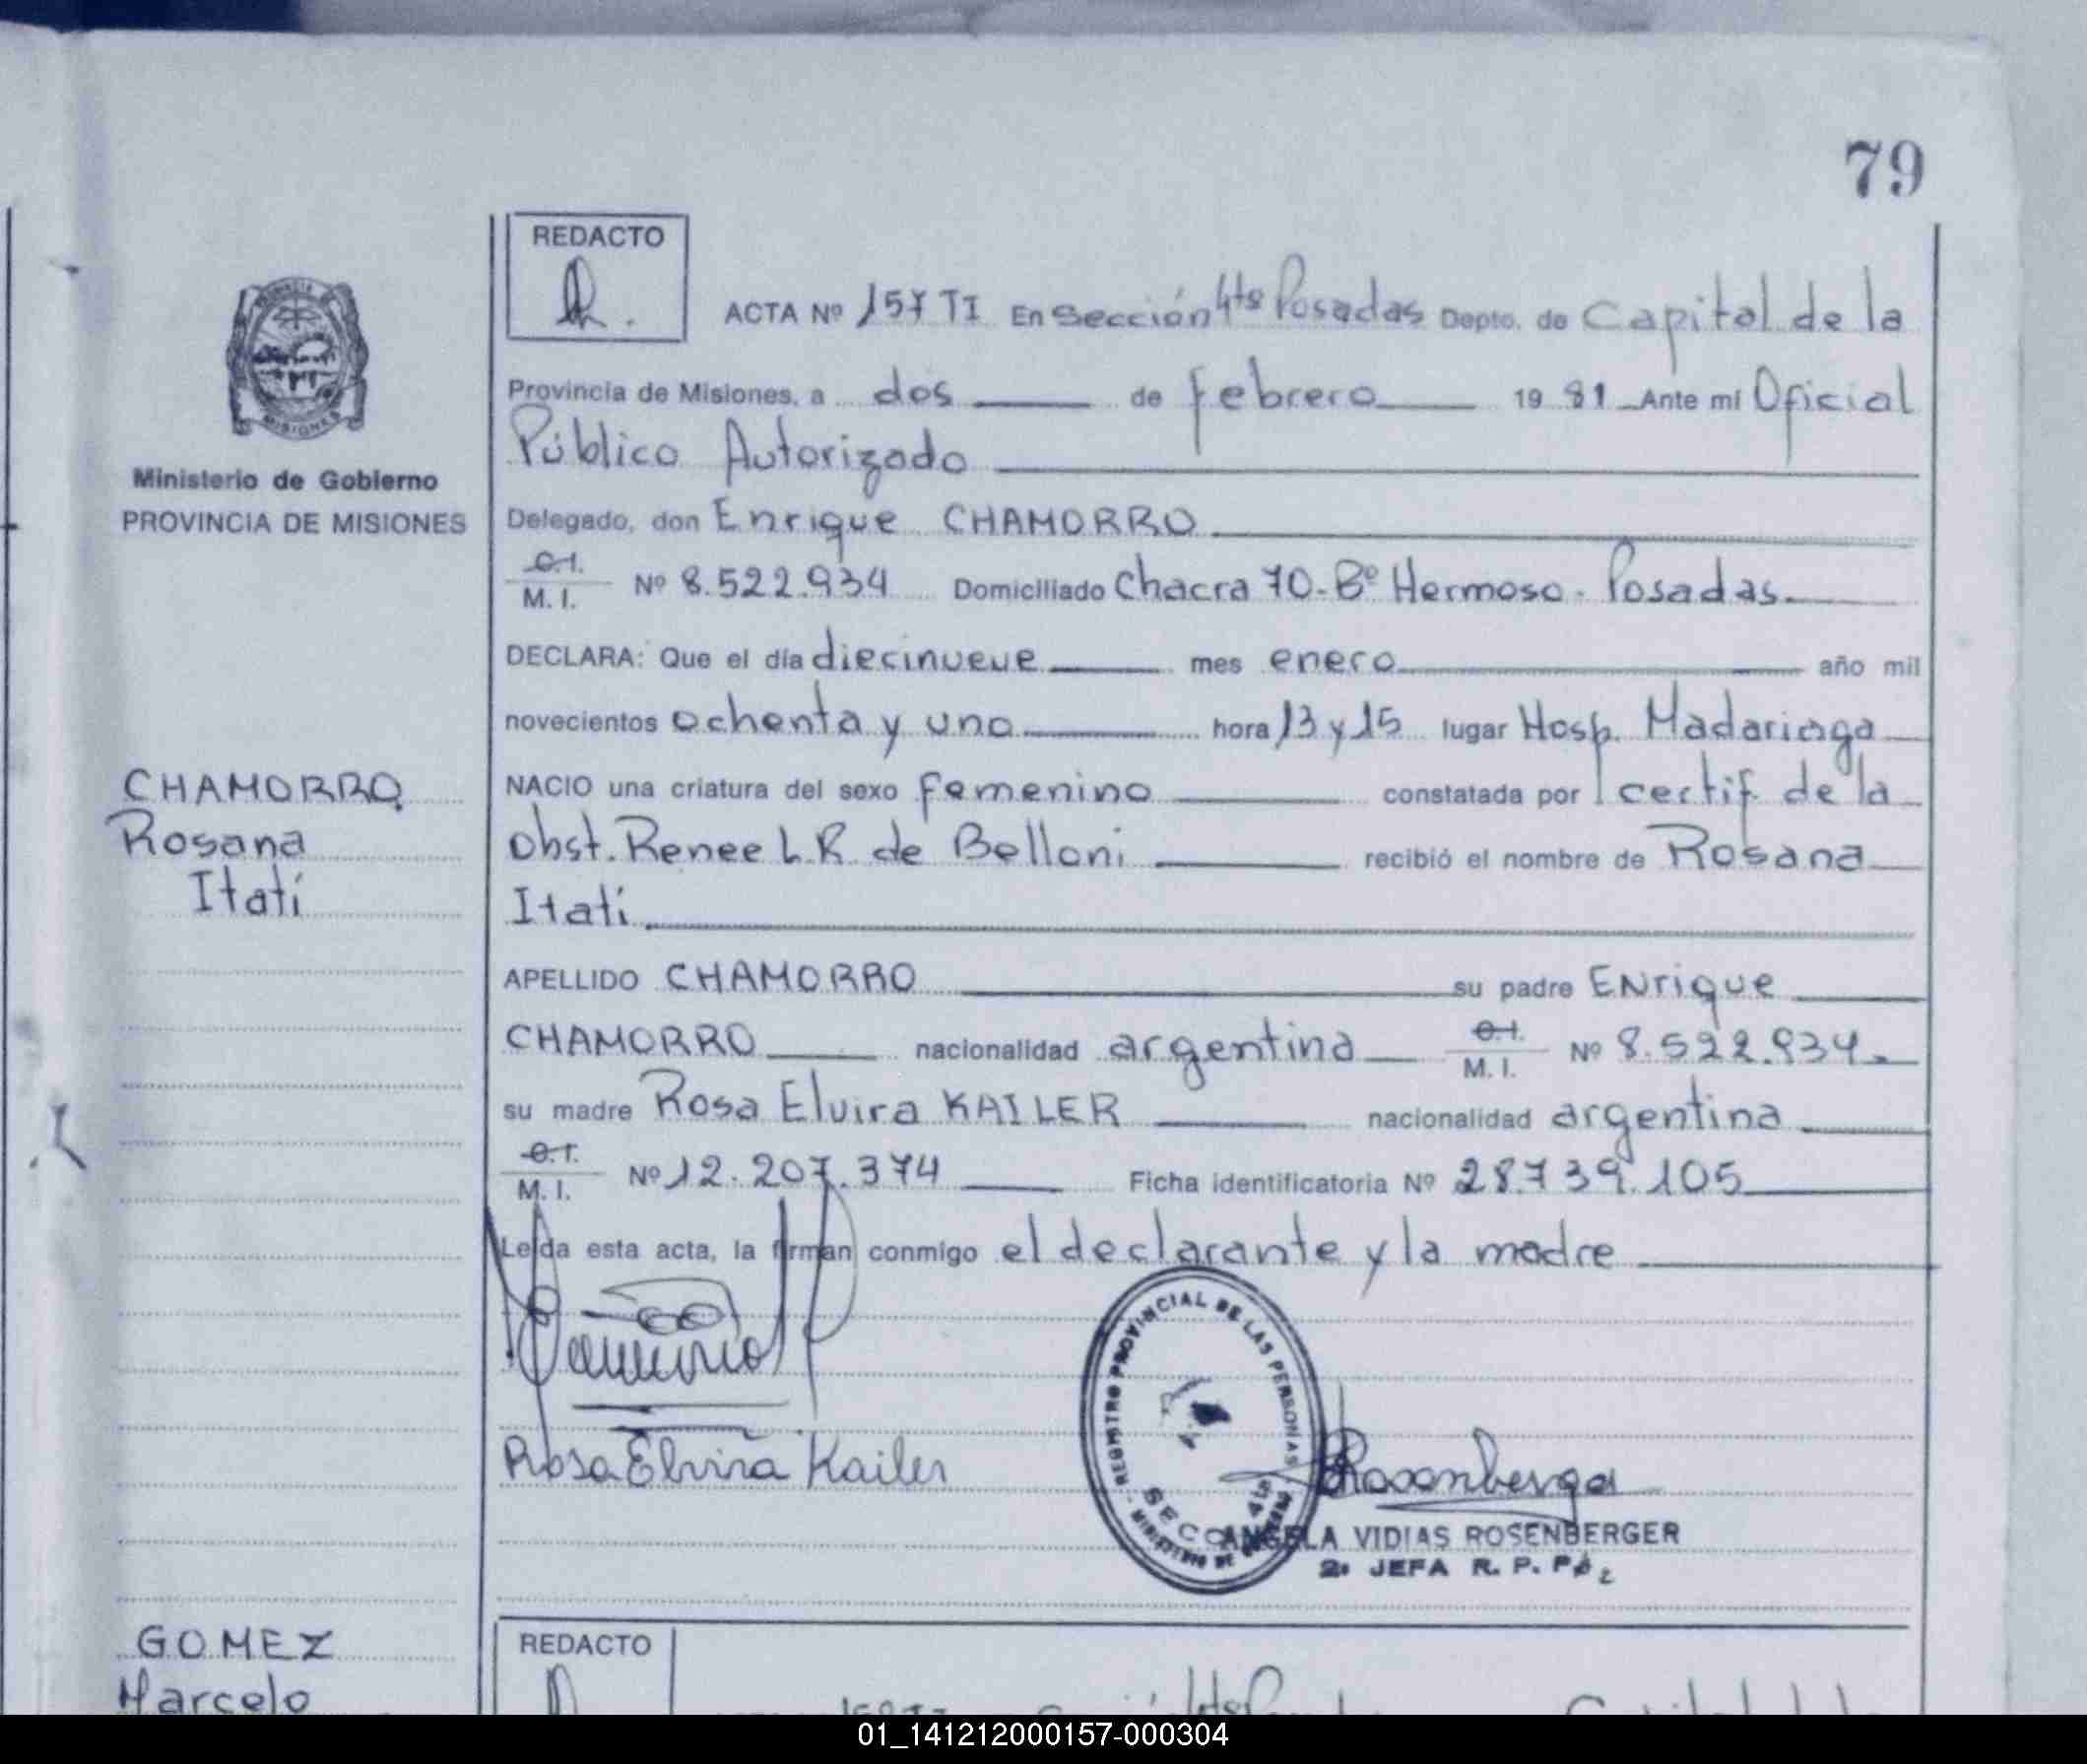 79
REDACTO
ACTA Nº 157 TI En Sección 4ta Posadas Depto. de Capital de la
Provincia de Misiones, a dos de febrero 1981 Ante mi Oficial
Público Autorizado
Ministerio de Gobierno
PROVINCIA DE MISIONES
Delegado, don Enrique CHAMORRO
C.I. M.I. Nº 8.522.934 Domiciliado Chacra 70-Bº Hermoso. Posadas.
DECLARA: Que el día diecinueve mes enero año mil
novecientos ochenta y uno hora 13 y 15 lugar Hosp. Madariaga
CHAMORRO
Rosana
Itatí
NACIO una criatura del sexo femenino constatada por certif. de la
Obst. Renee L.R. de Belloni recibió el nombre de Rosana
Itatí
APELLIDO CHAMORRO su padre Enrique
CHAMORRO nacionalidad argentina C.I. M.I. Nº 8.522.934.
su madre Rosa Elvira KAILER nacionalidad argentina
C.I. M.I. Nº 12.207.374 Ficha identificatoria Nº 28.739.105
Leída esta acta, la firman conmigo el declarante y la madre
Rosa Elvira Kailer
REGISTRO PROVINCIAL DE LAS PERSONAS
MINISTERIO DE
SECC 4ta
Rosenberger
ANGELA VIDIAS ROSENBERGER
2. JEFA R. P. P.
GOMEZ
Marcelo
REDACTO
01_141212000157-000304